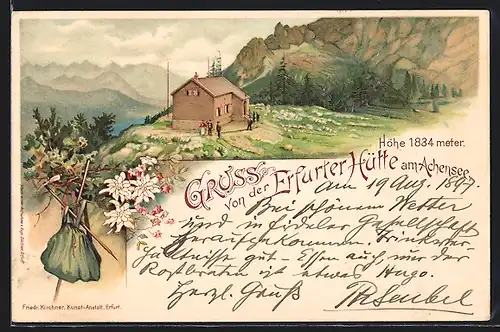 Höhe 1834 meter.
GRUSS
von der Erfurter Hütte am Achensee
Am 19 Aug. 1897.
Bei schönem Wetter
und in fideler Gesellschaft
heraufgekommen. Trinkver-
hältnisse gut - Essen auch nur der
Rostbraten ist etwas Hugo.
Herzl. Gruß
Friedr. Kirchner, Kunst-Anstalt, Erfurt.